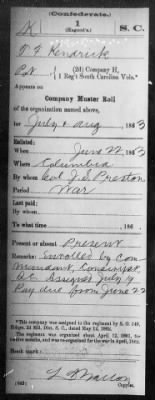 (Confederate.)
K 1 S. C.
(Hagood's)
T F Kendrick
Pvt, (2d) Company H,
1 Reg't South Carolina Vols.*
Appears on
Company Muster Roll
of the organization named above,
for July & Aug, 1863
Enlisted:
When June 22, 1863
Where Columbia
By whom Col J. S. Preston
Period War
Last paid:
By whom
To what time , 186
Present or absent Present
Remarks: Enrolled by Com
mandant, Conscripts
Assigned July 9
Pay due from June 22
*This company was assigned to the regiment by S. O. 149,
The regiment was organized about April 12, 1861, to
Book mark:
(642) Copyist.